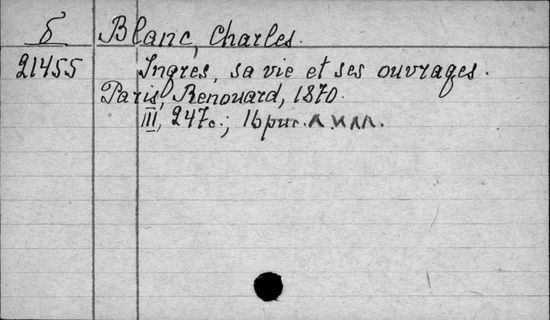 б Blanc, Charles.
21455 Ingres, sa vie et ses ouvrages.
Paris, Renouard, 1870.
III, 247с.; 16рис. л. илл.